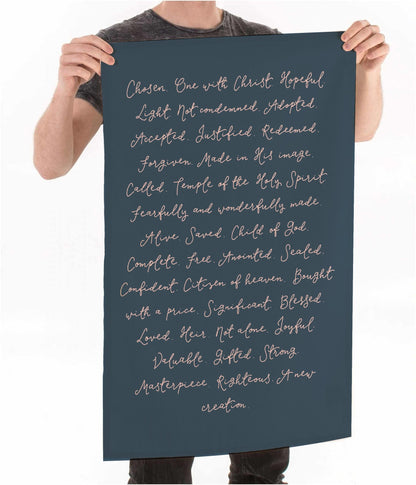 Chosen. One with Christ. Hopeful.
Light. Not condemned. Adopted.
Accepted. Justified. Redeemed.
Forgiven. Made in His image.
Called. Temple of the Holy Spirit.
Fearfully and wonderfully made.
Alive. Saved. Child of God.
Complete. Free. Anointed. Sealed.
Confident. Citizen of heaven. Bought
with a price. Significant. Blessed.
Loved. Heir. Not alone. Joyful.
Valuable. Gifted. Strong.
Masterpiece. Righteous. A new
creation.